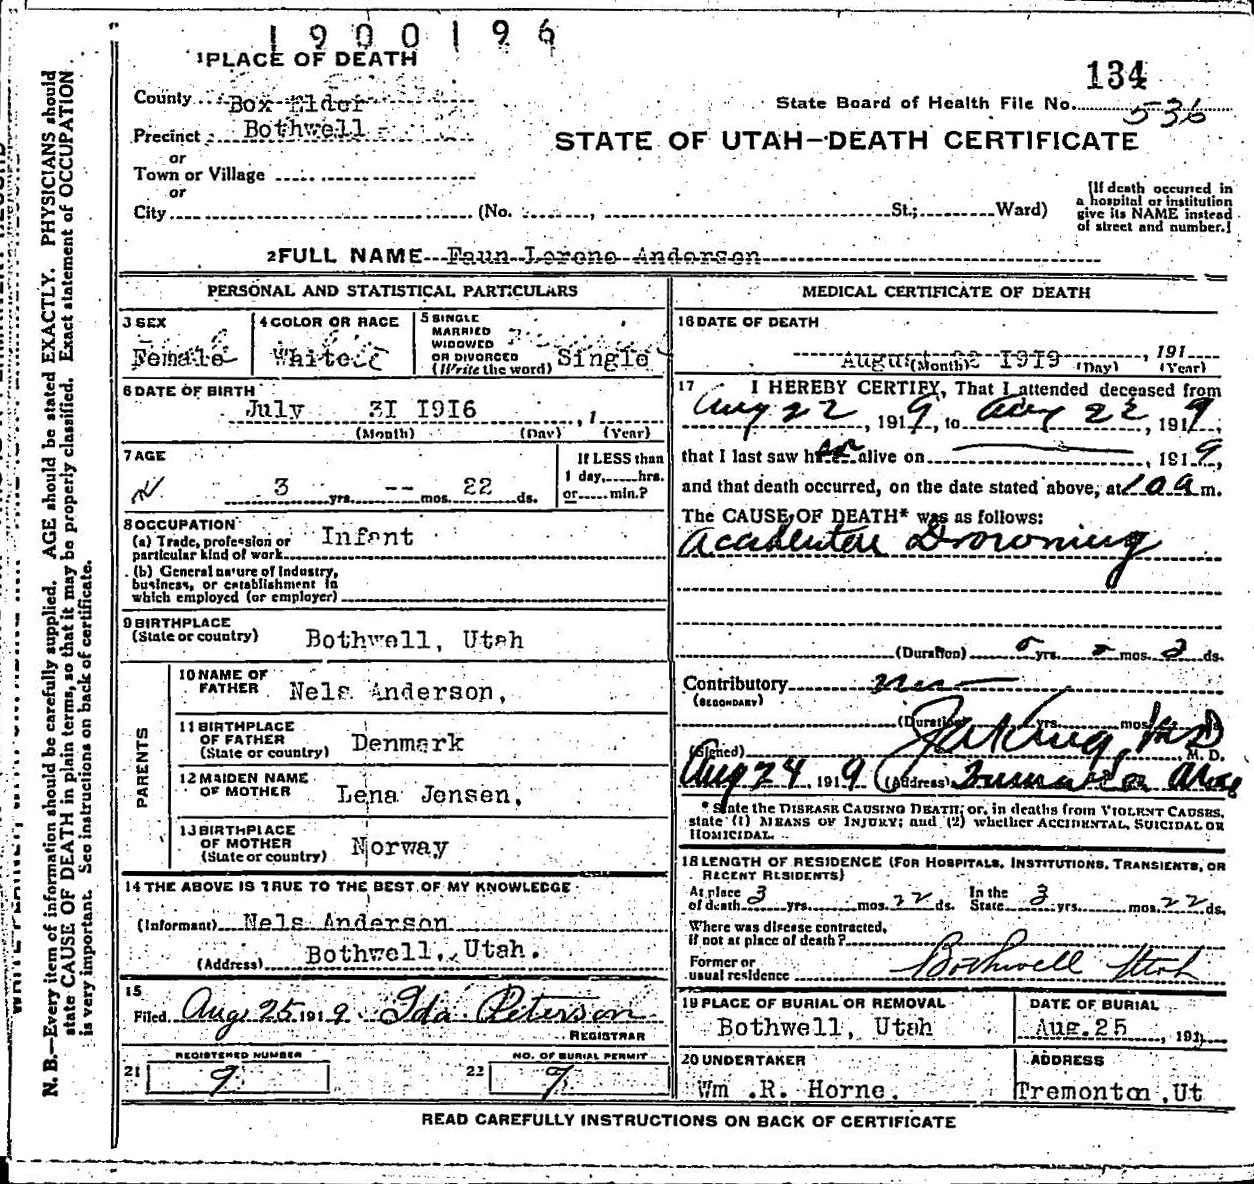 1900196
1 PLACE OF DEATH
134
County Box Elder
State Board of Health File No. 536
Precinct Bothwell
STATE OF UTAH—DEATH CERTIFICATE
or
Town or Village
or
City (No. , St.; Ward)
[If death occurred in
a hospital or institution
give its NAME instead
of street and number.]
2 FULL NAME Faun Lorene Anderson
PERSONAL AND STATISTICAL PARTICULARS
3 SEX
Female
4 COLOR OR RACE
White
5 SINGLE
MARRIED
WIDOWED
OR DIVORCED
(Write the word) Single
6 DATE OF BIRTH
July 31 1916 , 1
(Month) (Day) (Year)
7 AGE
3 yrs. -- mos. 22 ds.
If LESS than
1 day, hrs.
or min.?
8 OCCUPATION
(a) Trade, profession or
particular kind of work Infant
(b) General nature of Industry,
business, or establishment in
which employed (or employer)
9 BIRTHPLACE
(State or country) Bothwell, Utah
PARENTS
10 NAME OF
FATHER Nels Anderson,
11 BIRTHPLACE
OF FATHER
(State or country) Denmark
12 MAIDEN NAME
OF MOTHER Lena Jensen,
13 BIRTHPLACE
OF MOTHER
(State or country) Norway
14 THE ABOVE IS TRUE TO THE BEST OF MY KNOWLEDGE
(Informant) Nels Anderson
(Address) Bothwell, Utah.
15
Filed Aug 25, 1919. Ida Peterson
REGISTRAR
REGISTERED NUMBER
21 9
NO. OF BURIAL PERMIT
22 9
MEDICAL CERTIFICATE OF DEATH
16 DATE OF DEATH
August 22 1919 , 191
(Month) (Day) (Year)
17 I HEREBY CERTIFY, That I attended deceased from
Aug 22, 1919, to Aug 22, 1919,
that I last saw her alive on , 1919,
and that death occurred, on the date stated above, at 10 a m.
The CAUSE OF DEATH* was as follows:
Accidental Drowning
(Duration) yrs. mos. ds.
Contributory
(SECONDARY)
(Duration) yrs. mos. ds.
(Signed) M. D.
Aug 24 1919 (Address)
* State the DISEASE CAUSING DEATH; or, in deaths from VIOLENT CAUSES,
state (1) MEANS OF INJURY; and (2) whether ACCIDENTAL, SUICIDAL OR
HOMICIDAL.
18 LENGTH OF RESIDENCE (FOR HOSPITALS, INSTITUTIONS, TRANSIENTS, OR
RECENT RESIDENTS)
At place
of death 3 yrs. mos. 22 ds.
In the
State 3 yrs. mos. 22 ds.
Where was disease contracted,
if not at place of death?
Former or
usual residence Bothwell Utah
19 PLACE OF BURIAL OR REMOVAL
Bothwell, Utah
DATE OF BURIAL
Aug. 25 , 191
20 UNDERTAKER
Wm .R. Horne.
ADDRESS
Tremonton ,Ut
READ CAREFULLY INSTRUCTIONS ON BACK OF CERTIFICATE
N. B.—Every item of information should be carefully supplied. AGE should be stated EXACTLY. PHYSICIANS should
state CAUSE OF DEATH in plain terms, so that it may be properly classified. Exact statement of OCCUPATION
is very important. See instructions on back of certificate.